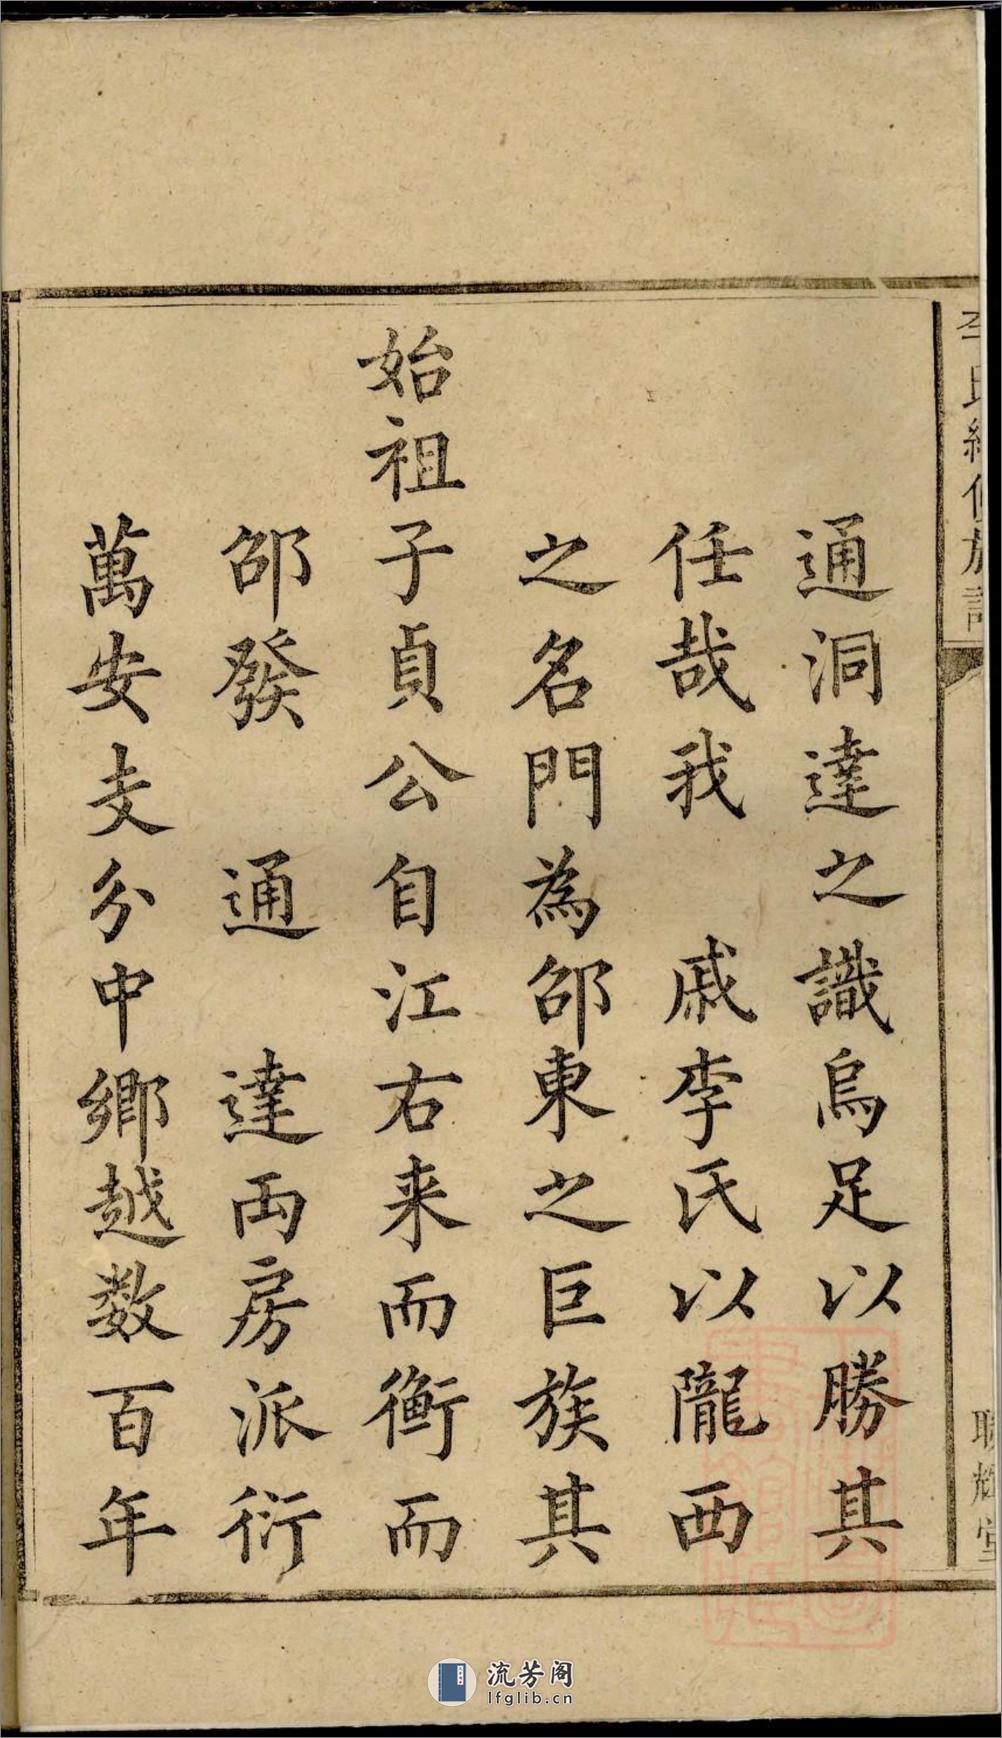 李氏續修族譜
聯輝堂
通洞達之識烏足以勝其
任哉我 戚李氏以隴西
之名門為邵東之巨族其
始祖子貞公自江右来而衡而
邵發 通 達両房派衍
萬安支分中鄉越数百年
流芳阁
lfglib.cn